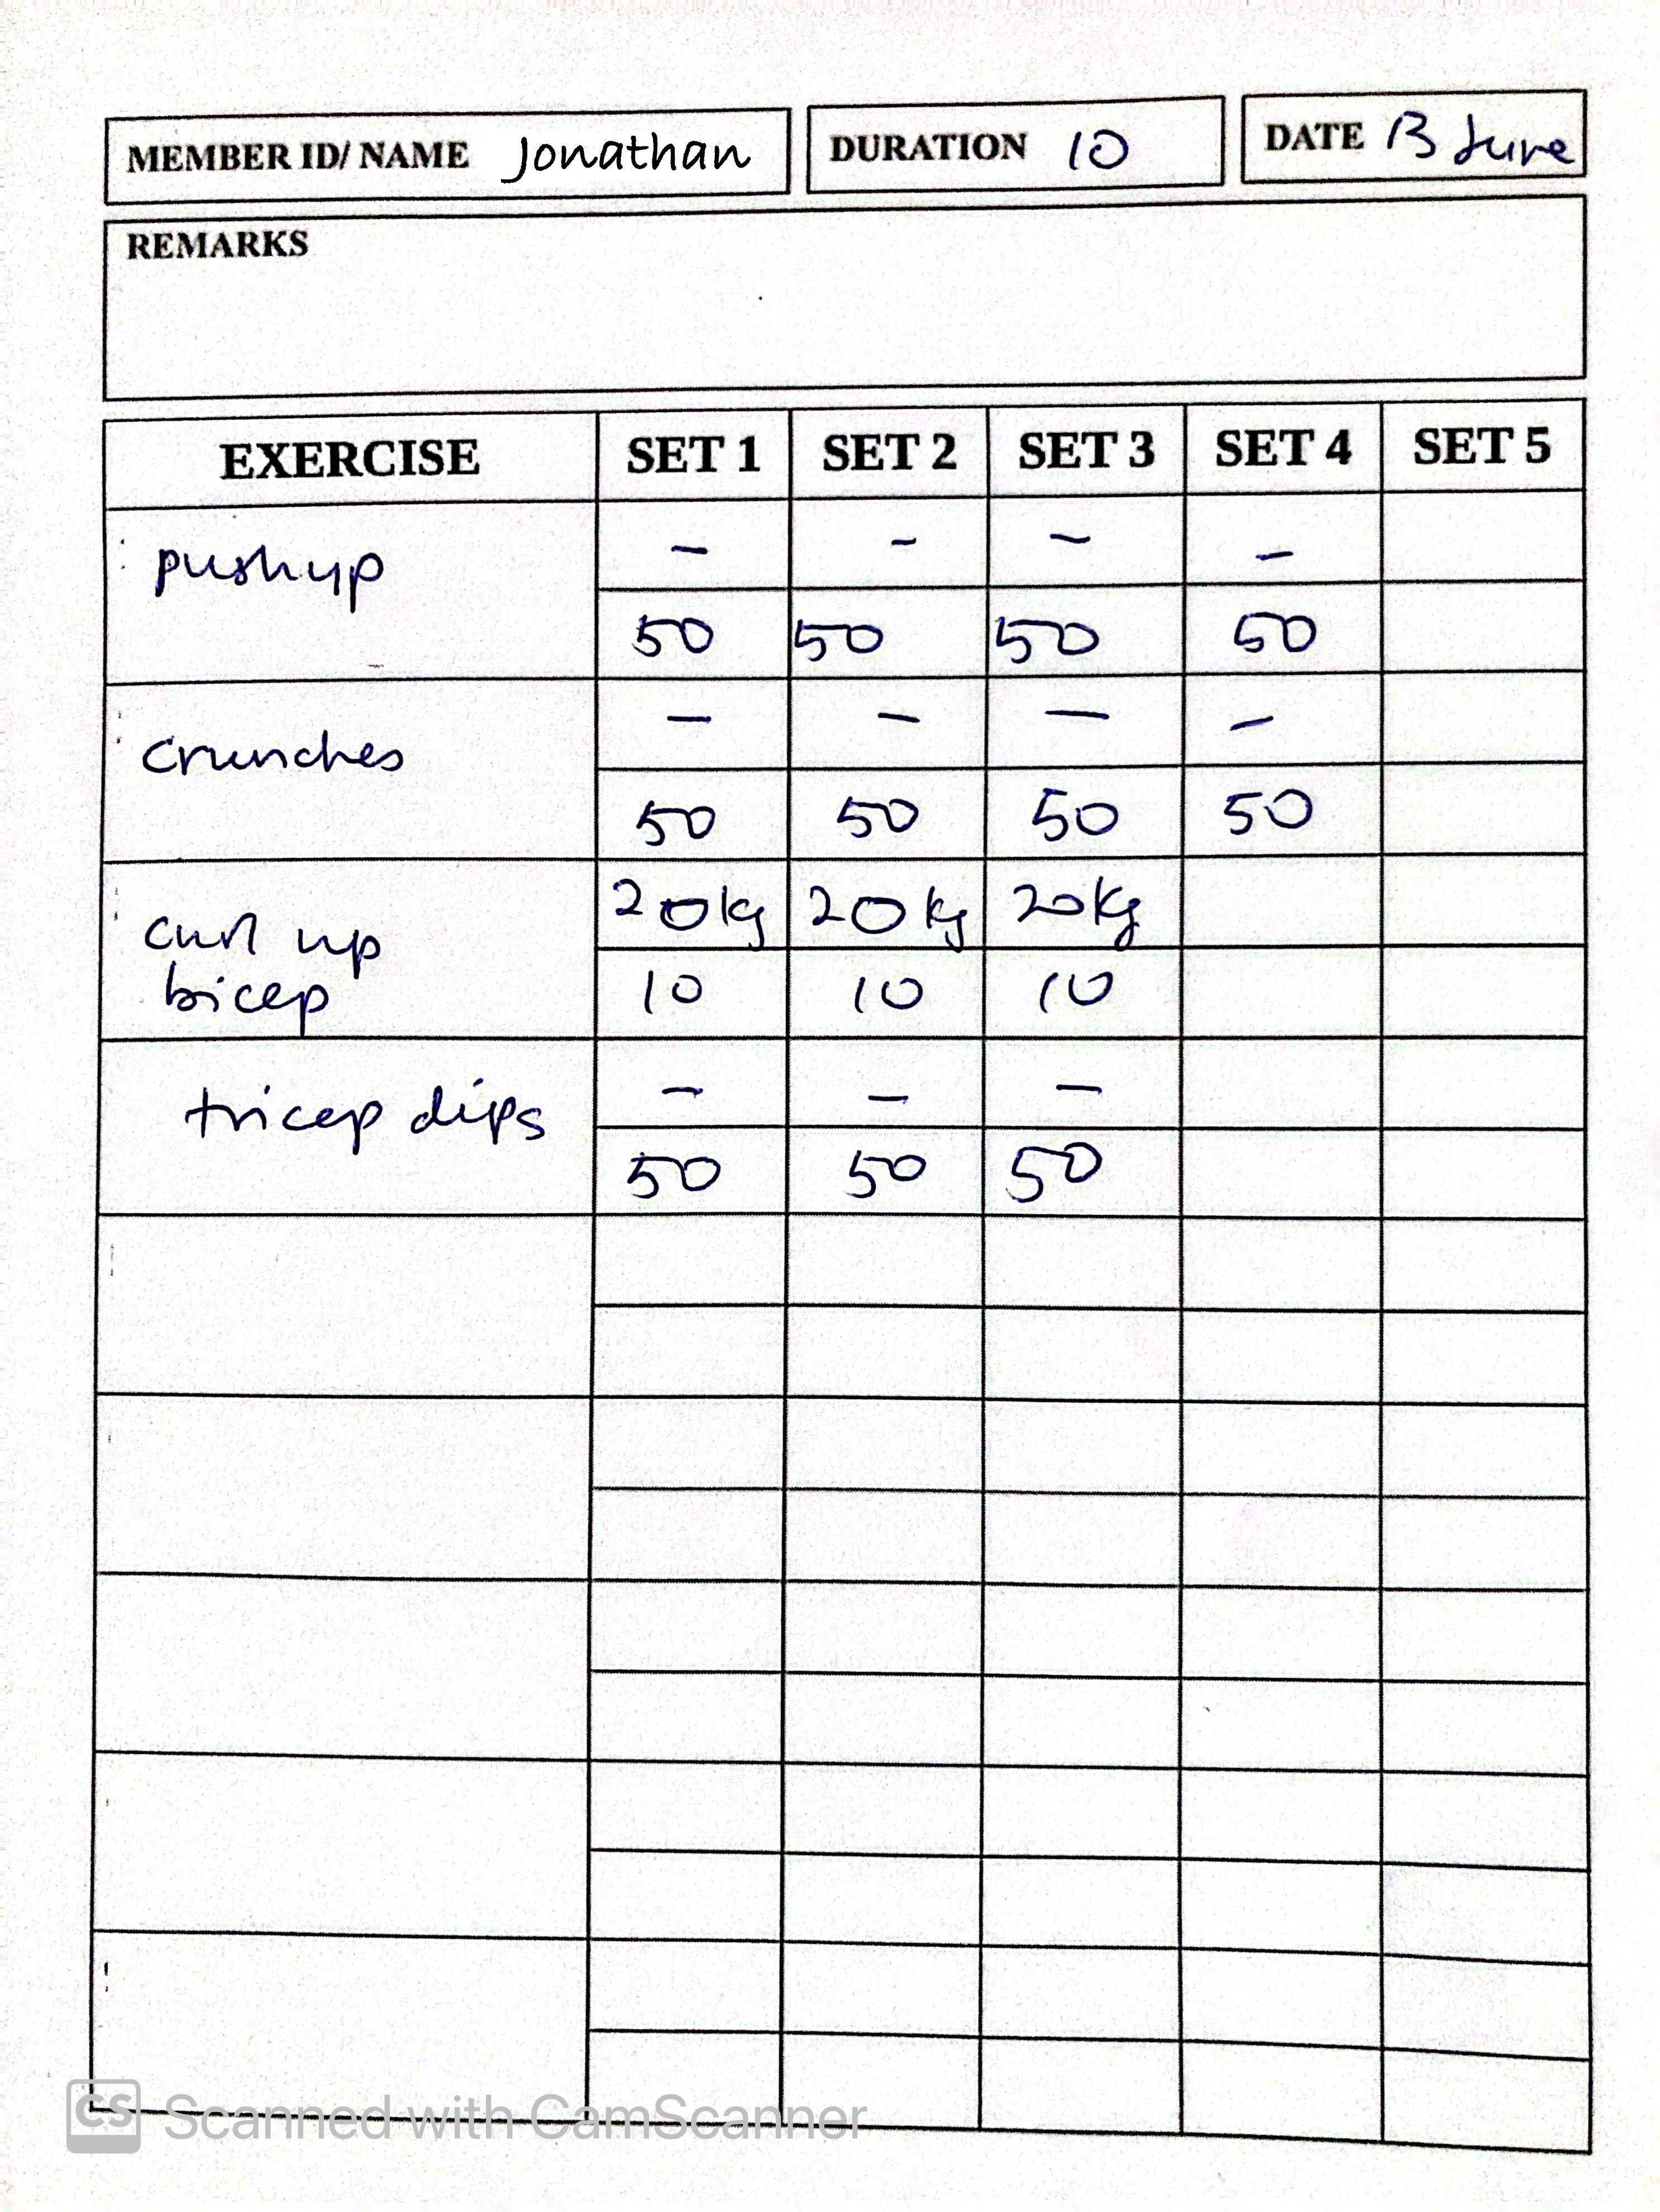 MEMBER ID/ NAME Jonathan DURATION 10 DATE 13 June
REMARKS
EXERCISE SET 1 SET 2 SET 3 SET 4 SET 5
pushup - - - -
50 50 50 50
crunches - - - -
50 50 50 50
curl up 20kg 20kg 20kg
bicep 10 10 10
tricep dips - - -
50 50 50
CS Scanned with CamScanner